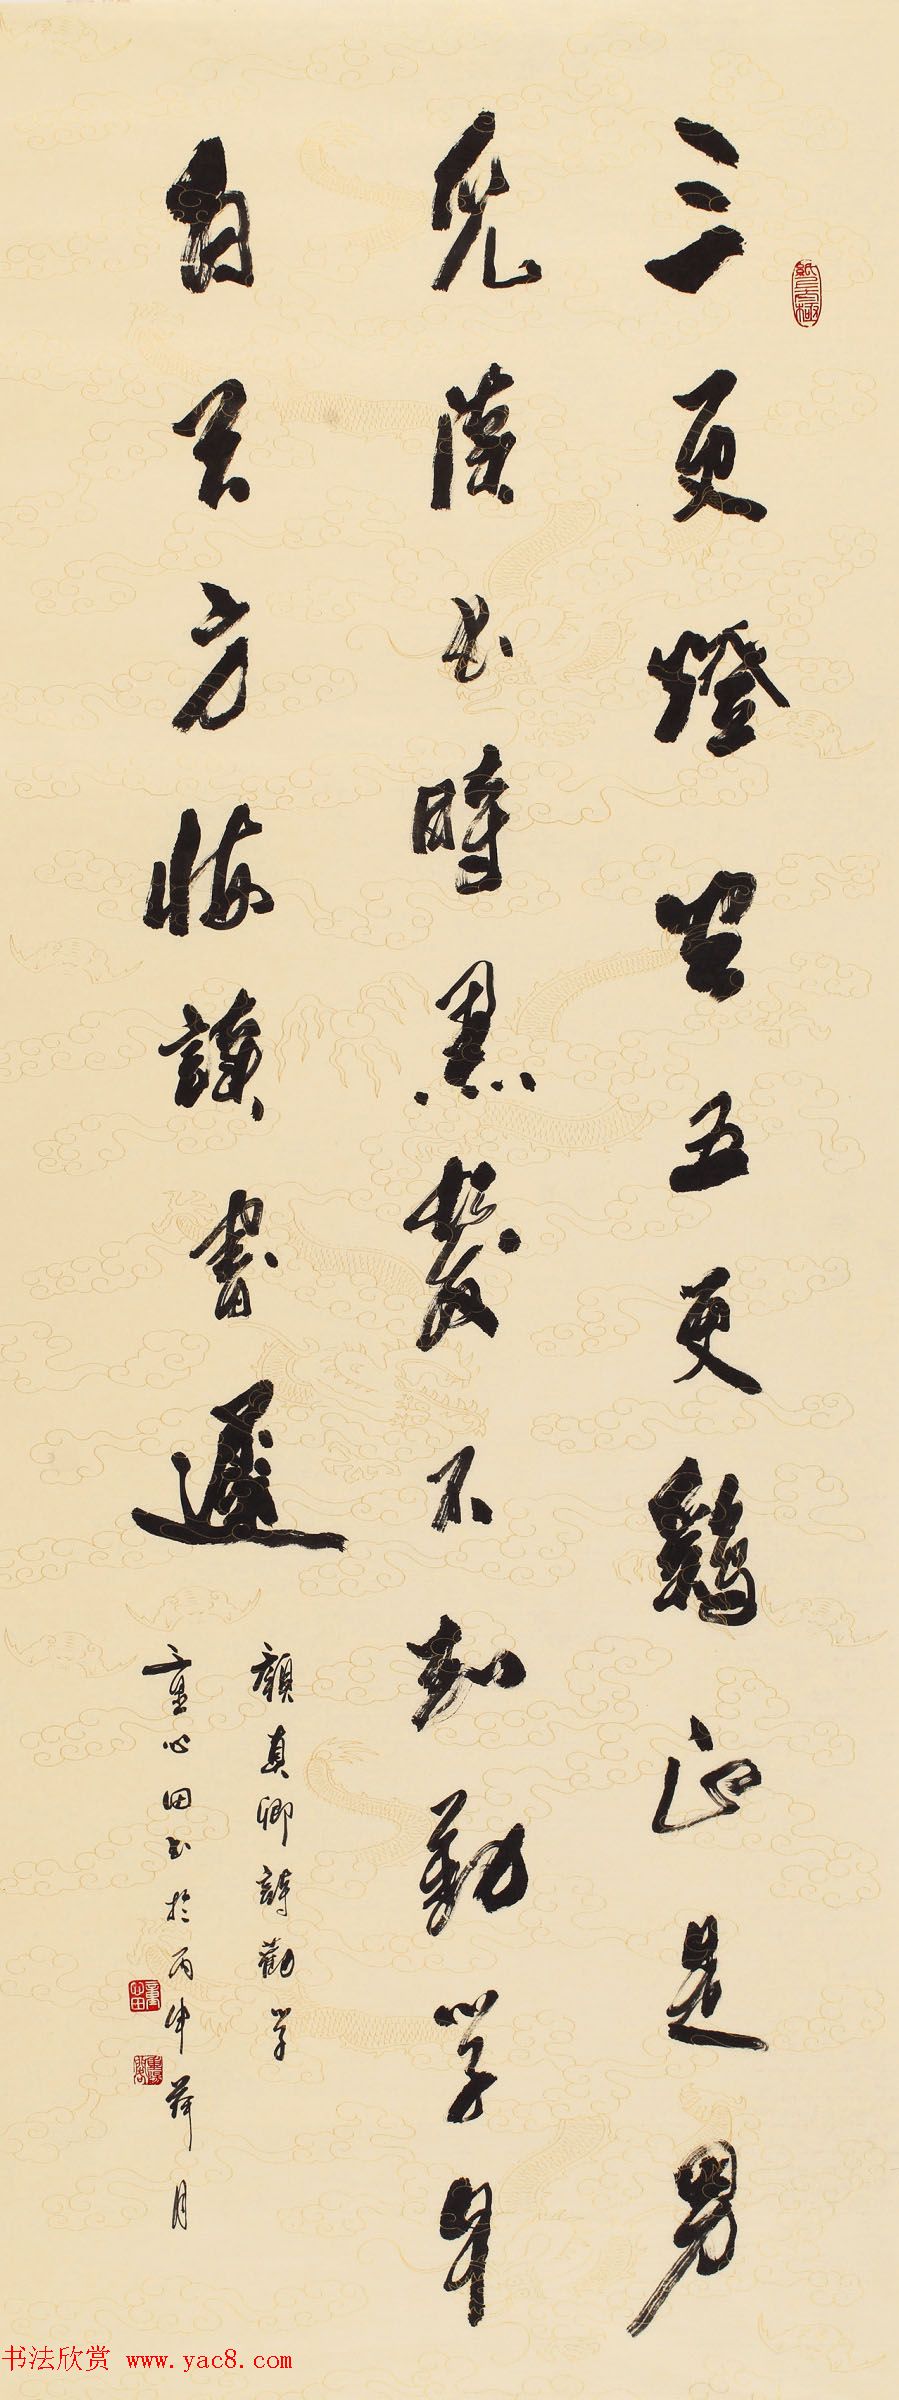 三更燈火五更鷄正是男
兒讀书時黑髮不知勤学早
白首方悔讀書遲
顏真卿詩勸学
童心田书於丙申荷月
书法欣赏 www.yac8.com